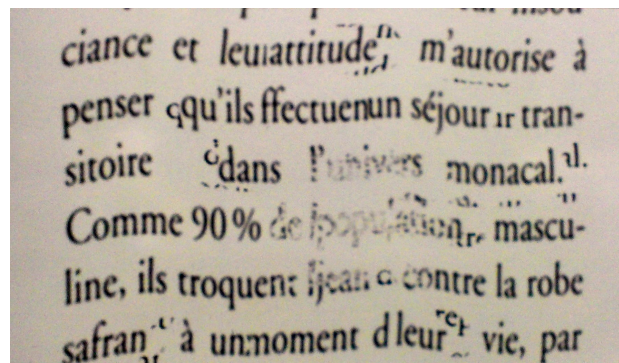 ciance et leur attitude m'autorise à
penser qu'ils effectuent un séjour tran-
sitoire dans l'univers monacal.
Comme 90 % de la population mascu-
line, ils troquent jean contre la robe
safran à un moment de leur vie, par